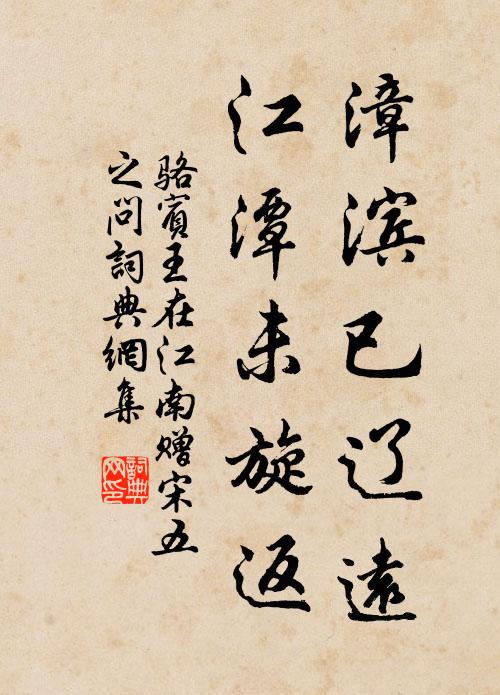 漳滨已辽遠
江潭未旋返
骆賓王在江南赠宋五
之问詞典網集
詞典网印